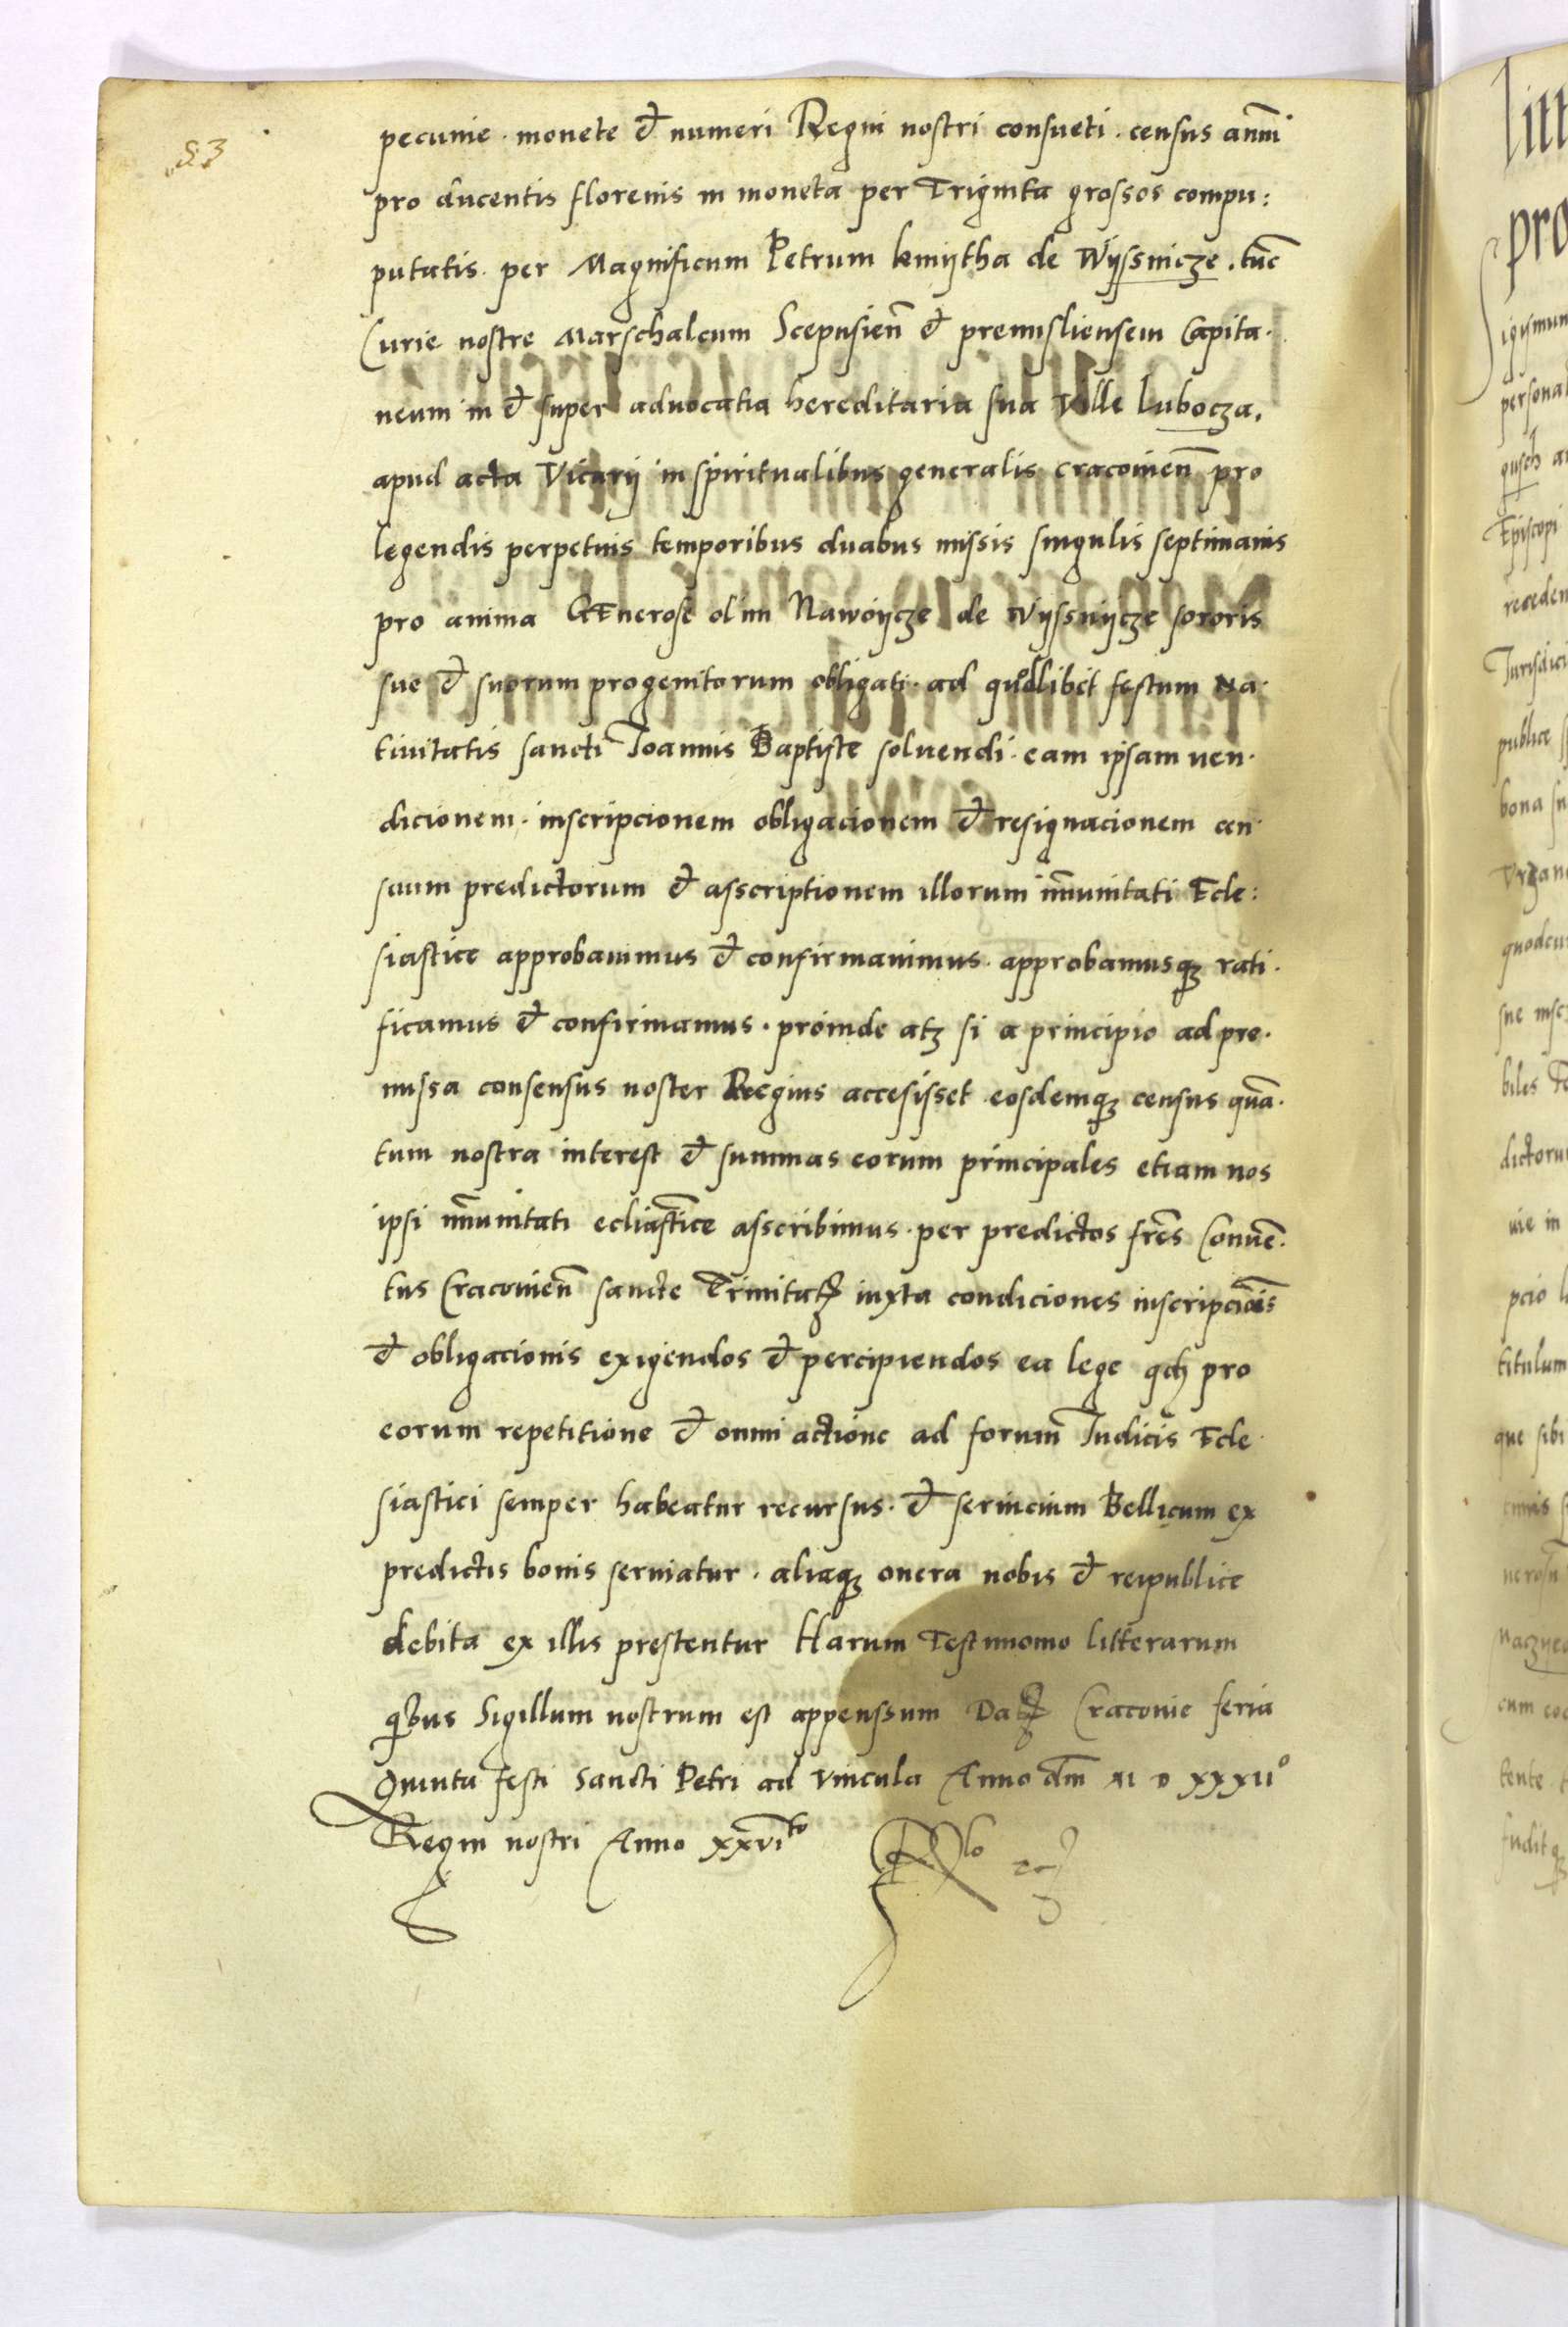 83
pecunie · monete et numeri Regni nostri consueti · census annui
pro ducentis florenis in moneta per Triginta grossos compu:
putatis · per Magnificum Petrum kmijtha de Wijssnicze · tunc
Curie nostre Marschalcum Scepusien̄ et premisliensem Capita·
neum in et super aduocatia hereditaria sua Ville Lubocza ·
apud acta Vicarij in spiritualibus generalis cracouien̄ pro
legendis perpetuis temporibus duabus missis singulis septimanis
pro anima GEnerose olim Nawoijcze de Wijssnijcze sororis
sue et suorum progenitorum obligati · ad quodlibet festum Na·
tiuitatis sancti Joannis Baptiste soluendi · eam ipsam uen·
dicionem · inscripcionem obligacionem et resignacionem cen·
suum predictorum et asscriptionem illorum im̄unitati Ecle:
siastice approbauimus et confirmauimus · approbamusqꝫ rati·
ficamus et confirmamus · proinde atqꝫ si a principio ad pre·
missa consensus noster Regius accesisset eosdemqꝫ census quā·
tum nostra interest et summas eorum principales etiam nos
ipsi im̄unitati ecliāstice asscribimus · per predictos fres̄ Conuē·
tus Cracouien̄ sancte Trinitatꝭ iuxta condiciones inscripciōis
et obligacionis exigendos et percipiendos ea lege qd̄ pro
eorum repetitione et omni actione ad forum Judicis Ecle·
siastici semper habeatur recursus · et seruicium Bellicum ex
predictis bonis seruiatur · aliaqꝫ onera nobis et reipublice
debita ex illis prestentur Harum Testimonio litterarum
qͥbus Sigillum nostrum est appenssum Datꝭ Cracouie feria
Quinta festi Sancti Petri ad Vincula Anno dm̄ M D XXXIIº
Regni nostri Anno XXVIto
litt
pro
igismun
persona
Episcopi
publice
bona su
quodcu
biles
dictoru
uie in
pcio
titulum
que sibi
tente